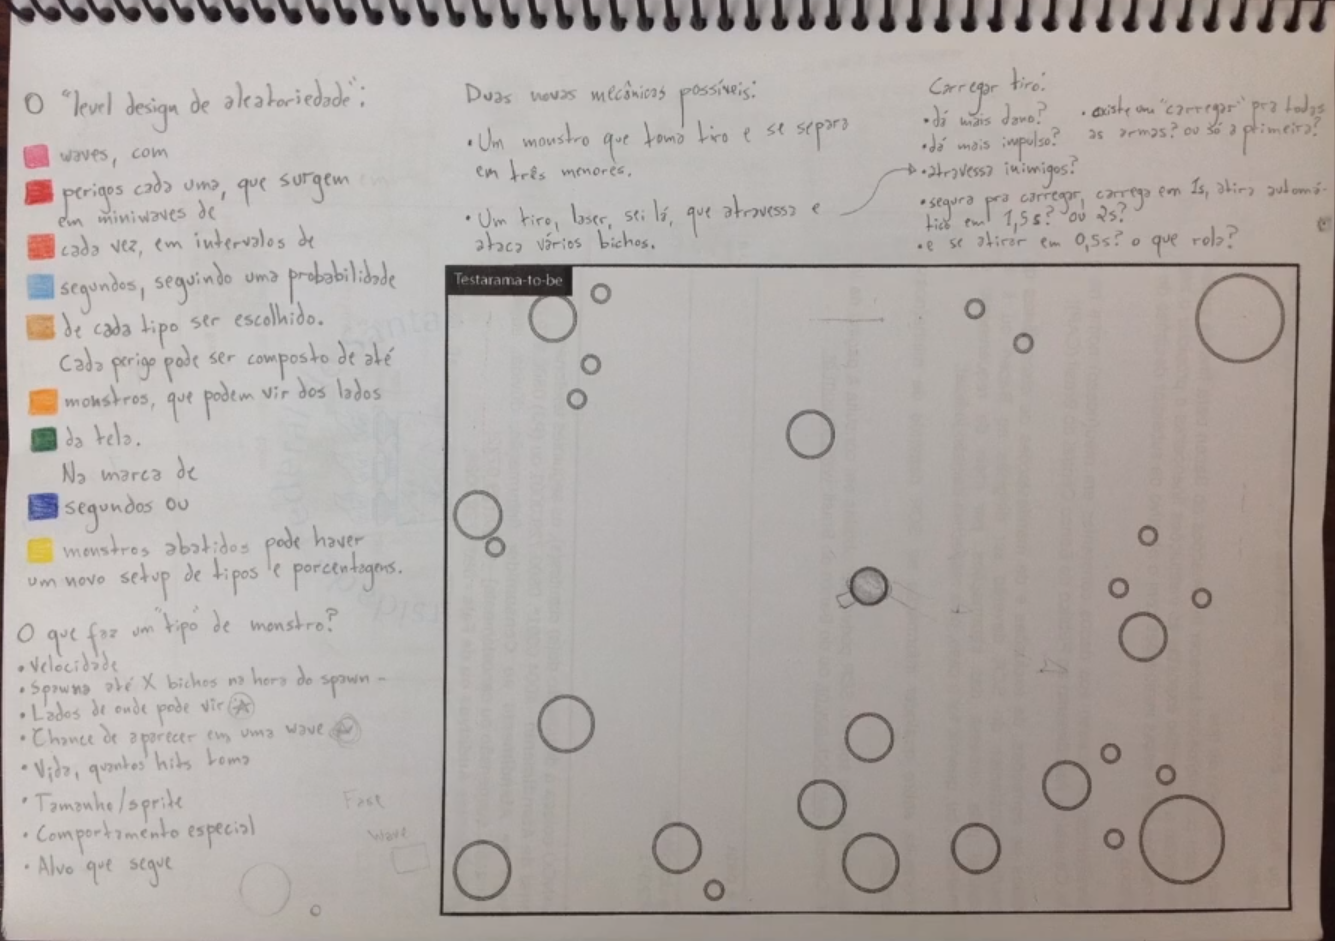 O "level design de aleatoriedade":
waves, com
perigos cada uma, que surgem
em miniwaves de
cada vez, em intervalos de
segundos, seguindo uma probabilidade
de cada tipo ser escolhido.
Cada perigo pode ser composto de até
monstros, que podem vir dos lados
da tela.
Na marca de
segundos ou
monstros abatidos pode haver
um novo setup de tipos e porcentagens.
O que faz um "tipo" de monstro?
• Velocidade
• Spawna até X bichos na hora do spawn -
• Lados de onde pode vir
• Chance de aparecer em uma wave
• Vida, quantos hits toma
• Tamanho/sprite
• Comportamento especial
• Alvo que segue
Fase
Wave
Duas novas mecânicas possíveis:
• Um monstro que toma tiro e se separa
em três menores.
• Um tiro, laser, sei lá, que atravessa e
ataca vários bichos.
Carregar tiro:
• dá mais dano?
• dá mais impulso?
• atravessa inimigos?
• existe um "carregar" pra todas
as armas? ou só a primeira?
• segura pra carregar, carrega em 1s, atira automá-
tico em 1,5s? ou 2s?
• e se atirar em 0,5s? o que rola?
Testarama-to-be